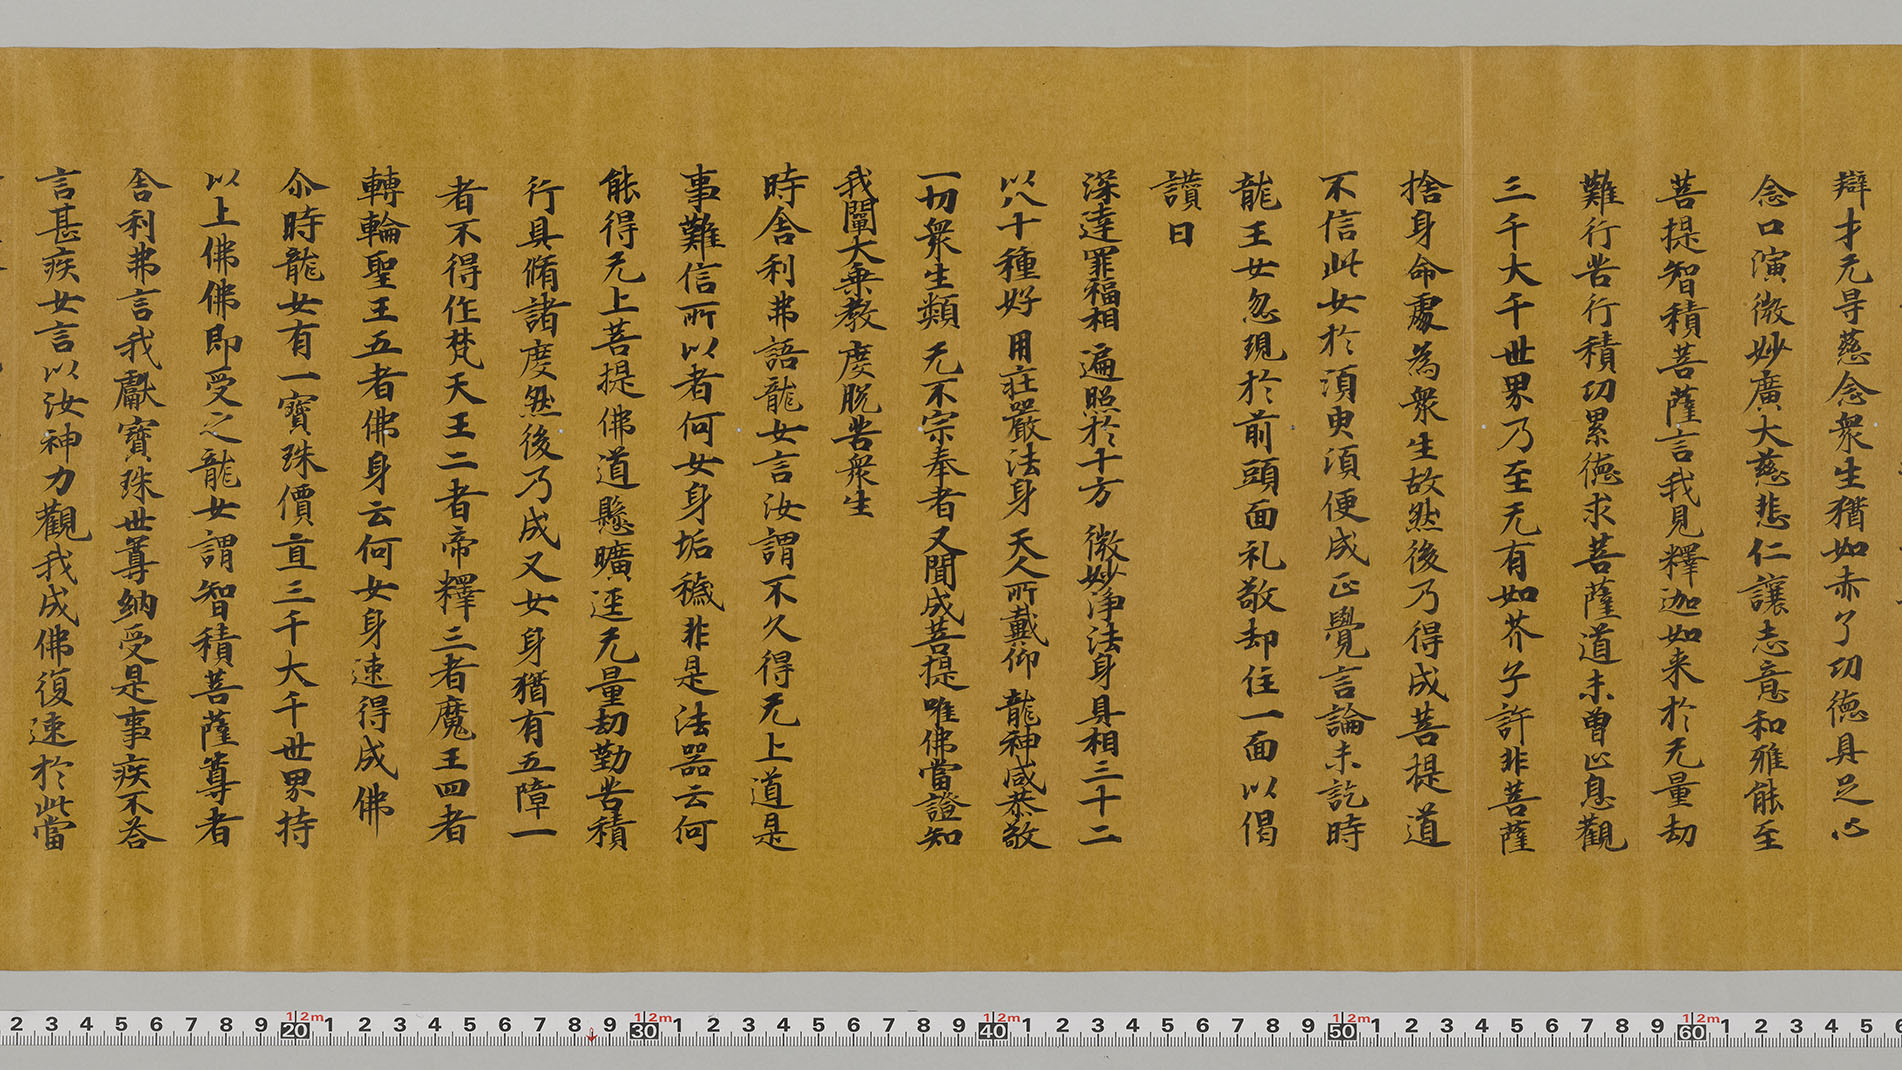 辯才无㝵慈念衆生猶如赤子功德具足心
念口演微妙廣大慈悲仁讓志意和雅能至
菩提智積菩薩言我見釋迦如来於无量劫
難行苦行積功累德求菩薩道未曽止息觀
三千大千世界乃至无有如芥子許非菩薩
捨身命處為衆生故然後乃得成菩提道
不信此女於湏臾湏便成正覺言論未訖時
龍王女忽現於前頭面礼敬却住一面以偈
讃曰
深達罪福相 遍照於十方 微妙淨法身 具相三十二
以八十種好 用莊嚴法身 天人所戴仰 龍神咸恭敬
一切衆生類 无不宗奉者 又聞成菩提 唯佛當證知
我闡大乗教 度脱苦衆生
時舍利弗語龍女言汝謂不久得无上道是
事難信所以者何女身垢穢非是法器云何
能得无上菩提佛道懸曠逕无量劫勤苦積
行具脩諸度然後乃成又女身猶有五障一
者不得作梵天王二者帝釋三者魔王四者
轉輪聖王五者佛身云何女身速得成佛
尒時龍女有一寶珠價直三千大千世界持
以上佛佛即受之龍女謂智積菩薩尊者
舎利弗言我獻寶珠世尊納受是事疾不荅
言甚疾女言以汝神力觀我成佛復速於此當
1 2 3 4 5 6 7 8 9 20 1 2 3 4 5 6 7 8 9 30 1 2 3 4 5 6 7 8 9 40 1 2 3 4 5 6 7 8 9 50 1 2 3 4 5 6 7 8 9 60 1 2 3 4 5 6